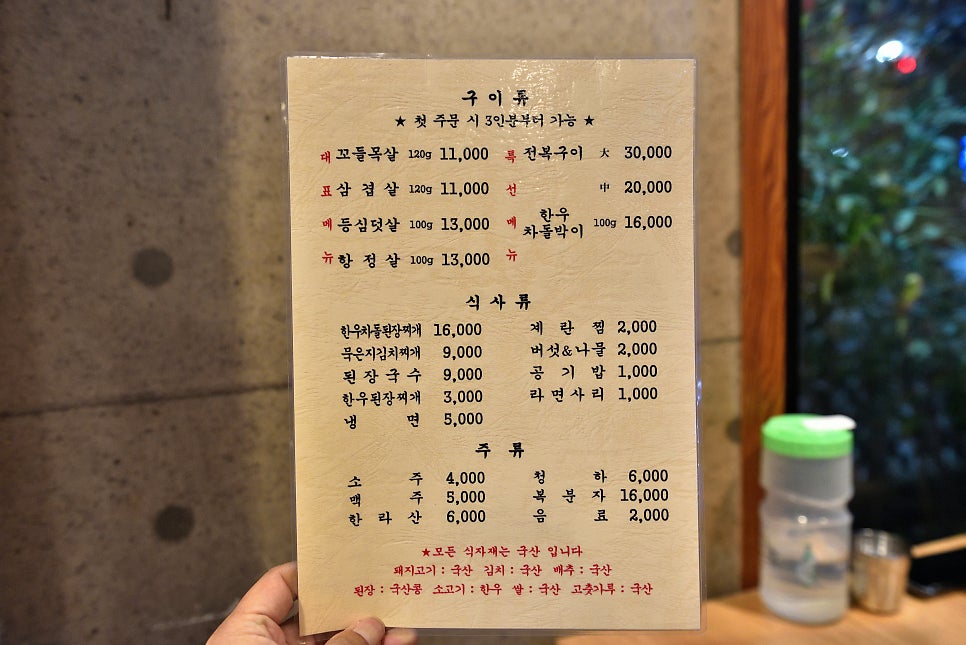 구이류
★ 첫 주문 시 3인분부터 가능 ★
대표메뉴
꼬들목살 120g 11,000
삼겹살 120g 11,000
등심덧살 100g 13,000
항정살 100g 13,000
특선메뉴
전복구이 大 30,000
中 20,000
한우
차돌박이 100g 16,000
식사류
한우차돌된장찌개 16,000
묵은지김치찌개 9,000
된장국수 9,000
한우된장찌개 3,000
냉면 5,000
계란찜 2,000
버섯&나물 2,000
공기밥 1,000
라면사리 1,000
주류
소주 4,000
맥주 5,000
한라산 6,000
청하 6,000
복분자 16,000
음료 2,000
★모든 식자재는 국산 입니다
돼지고기 : 국산 김치 : 국산 배추 : 국산
된장 : 국산콩 소고기 : 한우 쌀 : 국산 고춧가루 : 국산